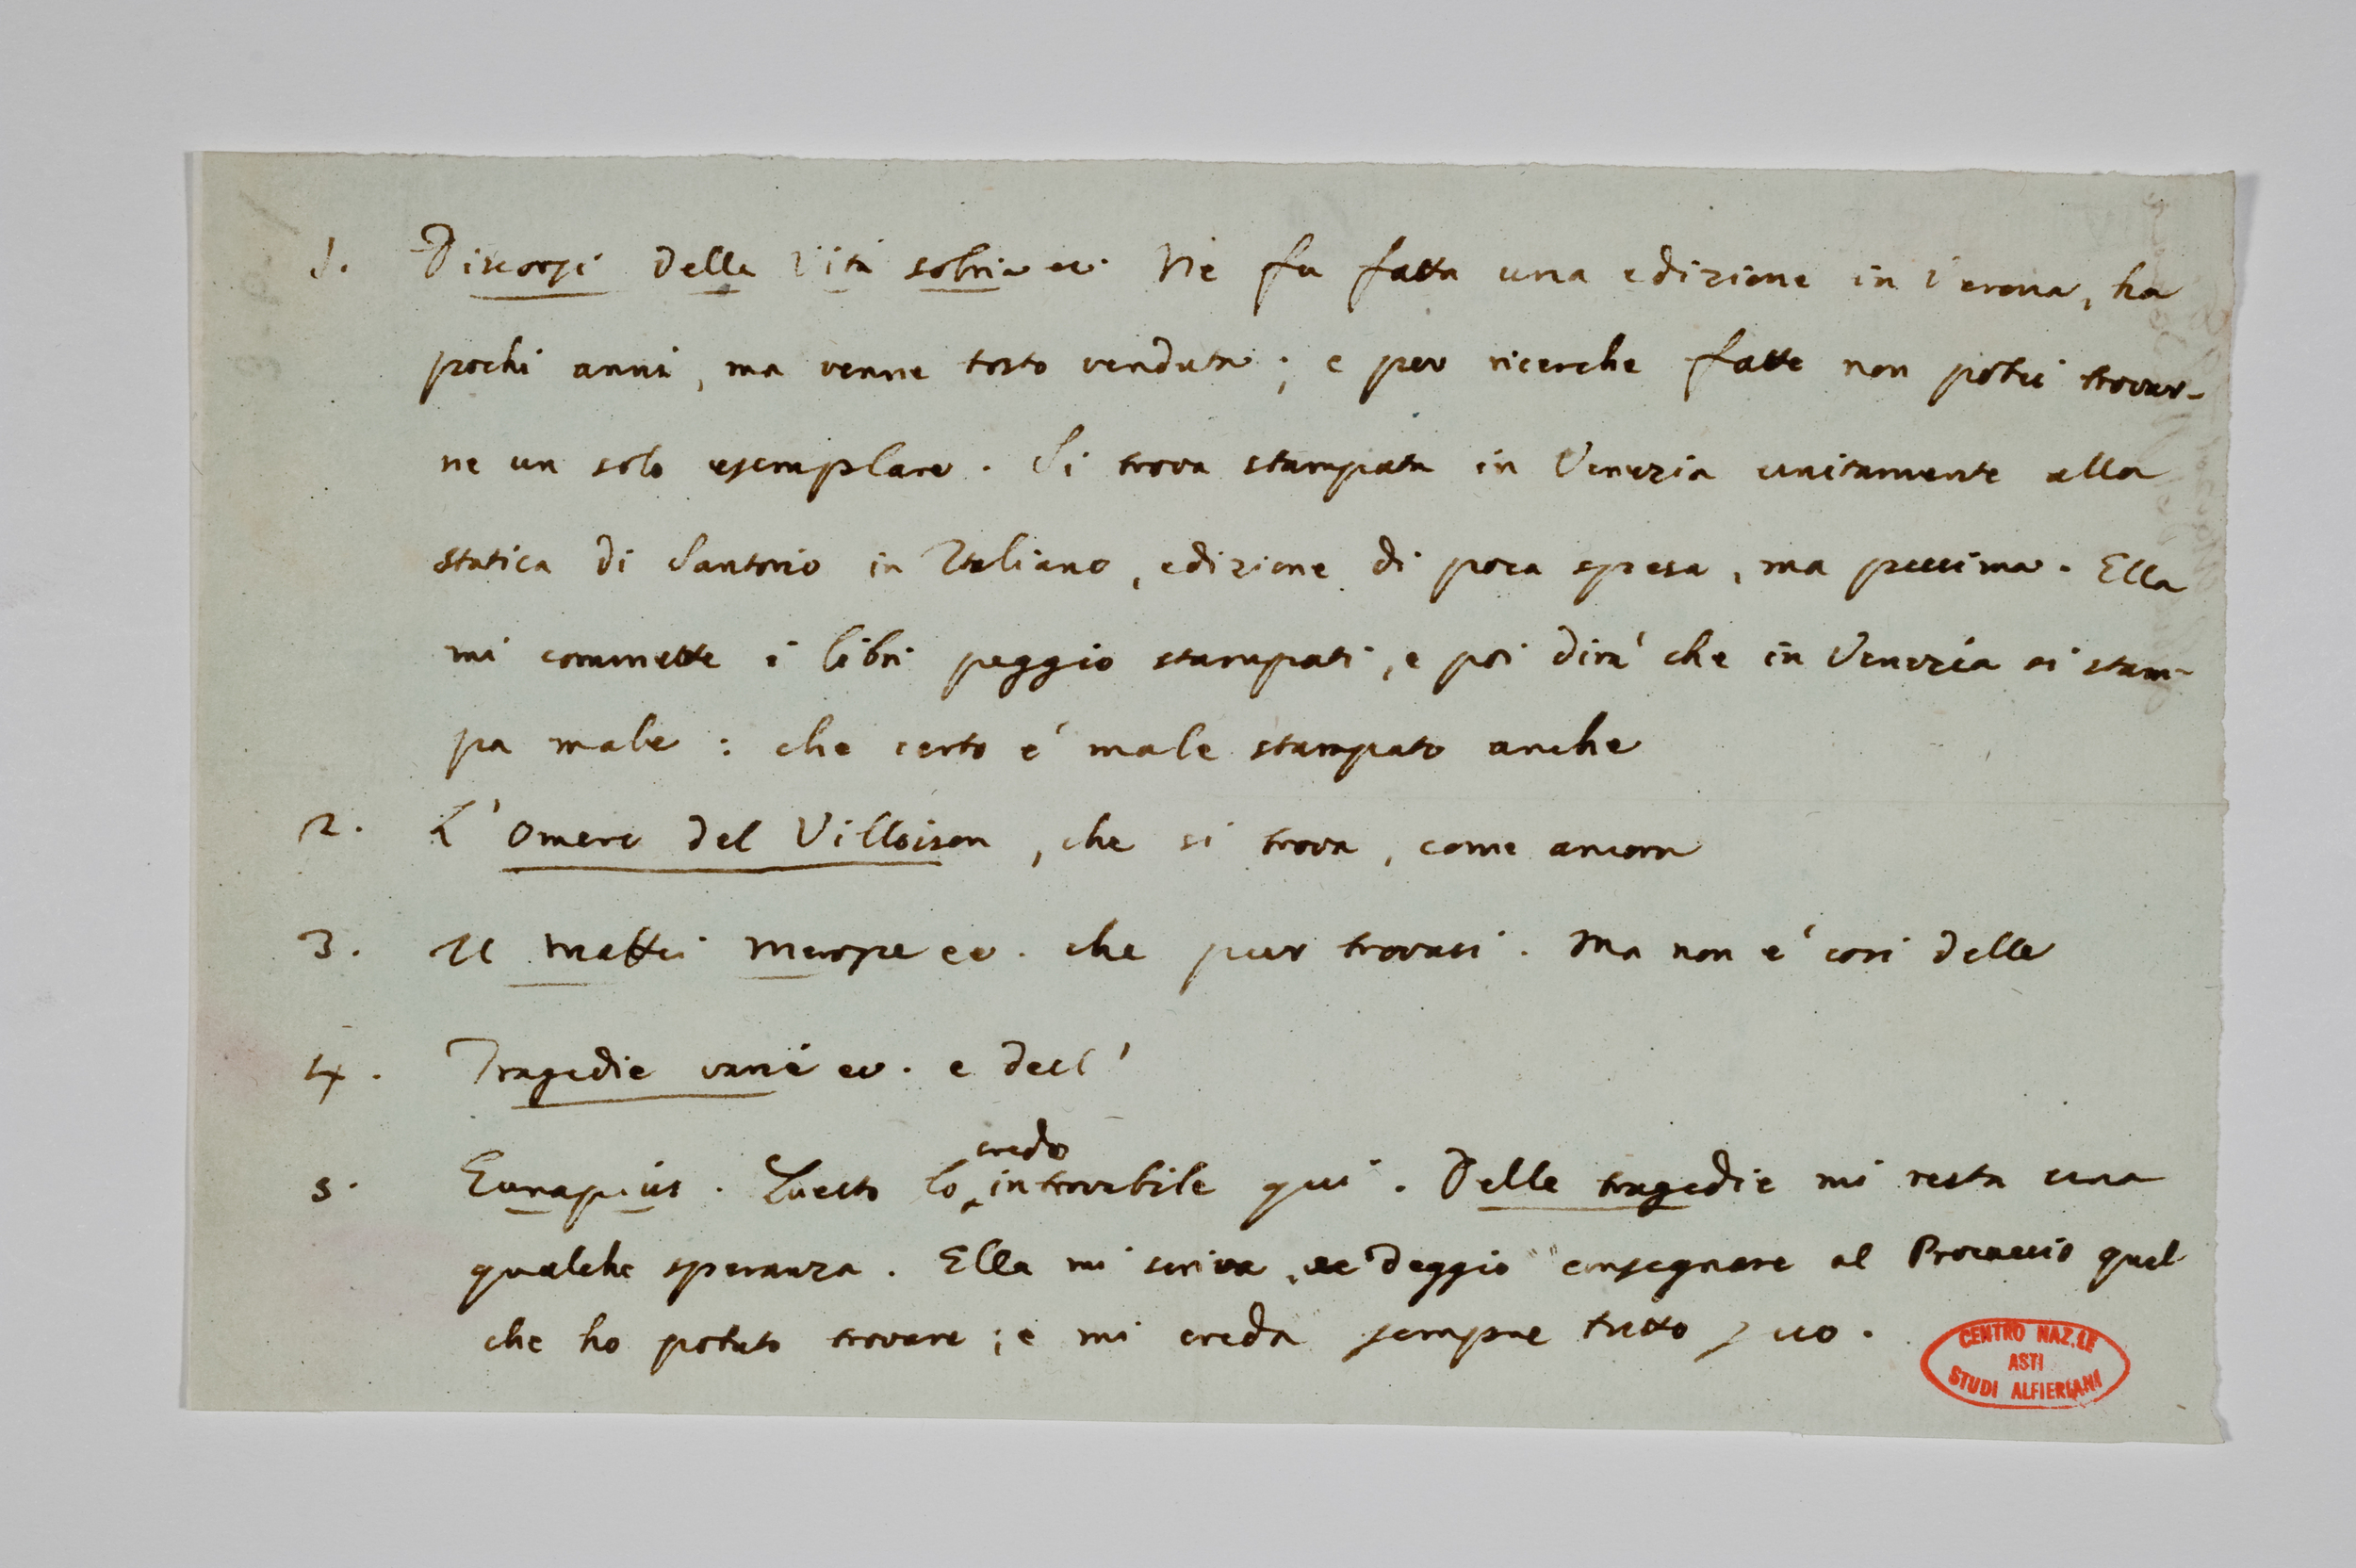 1. Discorsi della Vita sobria ec. Ne fu fatta una edizione in Verona, ha
pochi anni, ma venne tosto venduta; e per ricerche fatte non potei trovar-
ne un solo esemplare. Si trova stampata in Venezia unitamente alla
statica di Santorio in Italiano, edizione di poca spesa, ma pessima. Ella
mi commette i libri peggio stampati, e poi dirà che in Venezia si stam-
pa male: che certo è male stampato anche
2. L'Omero del Villoison, che si trova, come ancora
3. Il Maffei Merope ec. che pur trovasi. Ma non è così delle
4. Tragedie varie ec. e dell'
5. Eunapius. Questo lo credo introvabile qui. Delle tragedie mi resta una
qualche speranza. Ella mi scriva, se deggio consegnare al Procaccio quel
che ho potuto trovare; e mi creda sempre tutto suo.
CENTRO NAZ.LE
ASTI
STUDI ALFIERIANI